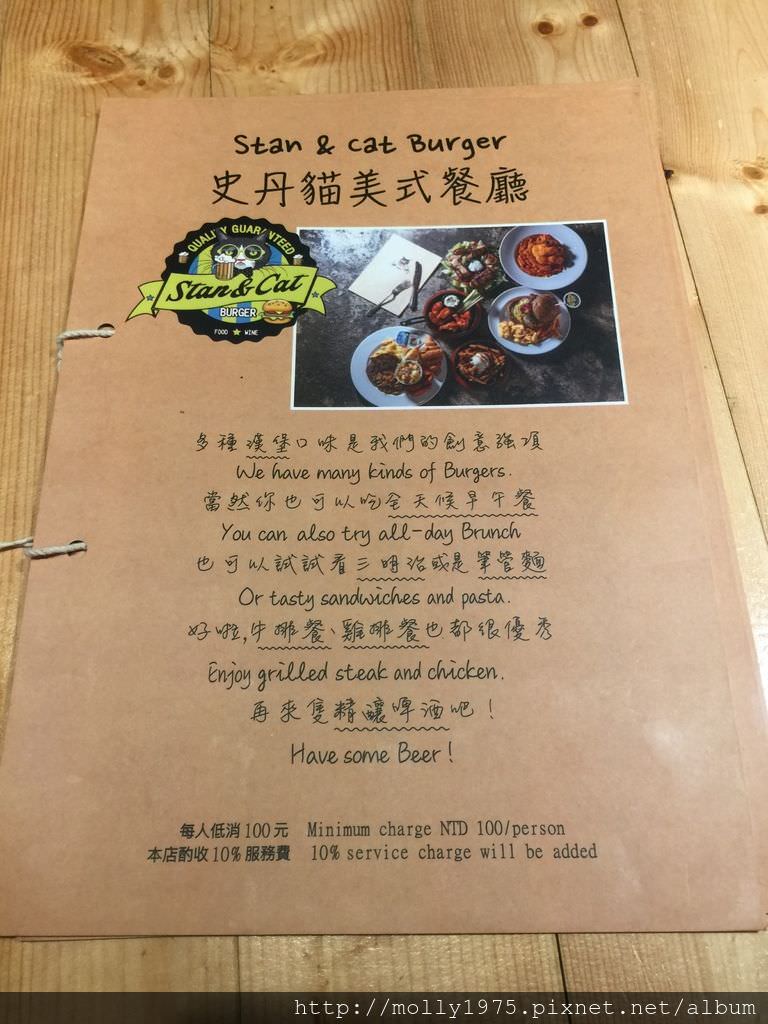 Stan & Cat Burger
史丹貓美式餐廳
QUALITY GUARANTEED
Stan & Cat
BURGER
FOOD ★ WINE
多種漢堡口味是我們的創意強項
We have many kinds of Burgers.
當然你也可以吃全天候早午餐
You can also try all-day Brunch
也可以試試看三明治或是筆管麵
Or tasty sandwiches and pasta.
好啦,牛排餐、雞排餐也都很優秀
Enjoy grilled steak and chicken.
再來隻精釀啤酒吧！
Have some Beer！
每人低消 100 元 Minimum charge NTD 100/person
本店酌收 10% 服務費 10% service charge will be added
http://molly1975.pixnet.net/album